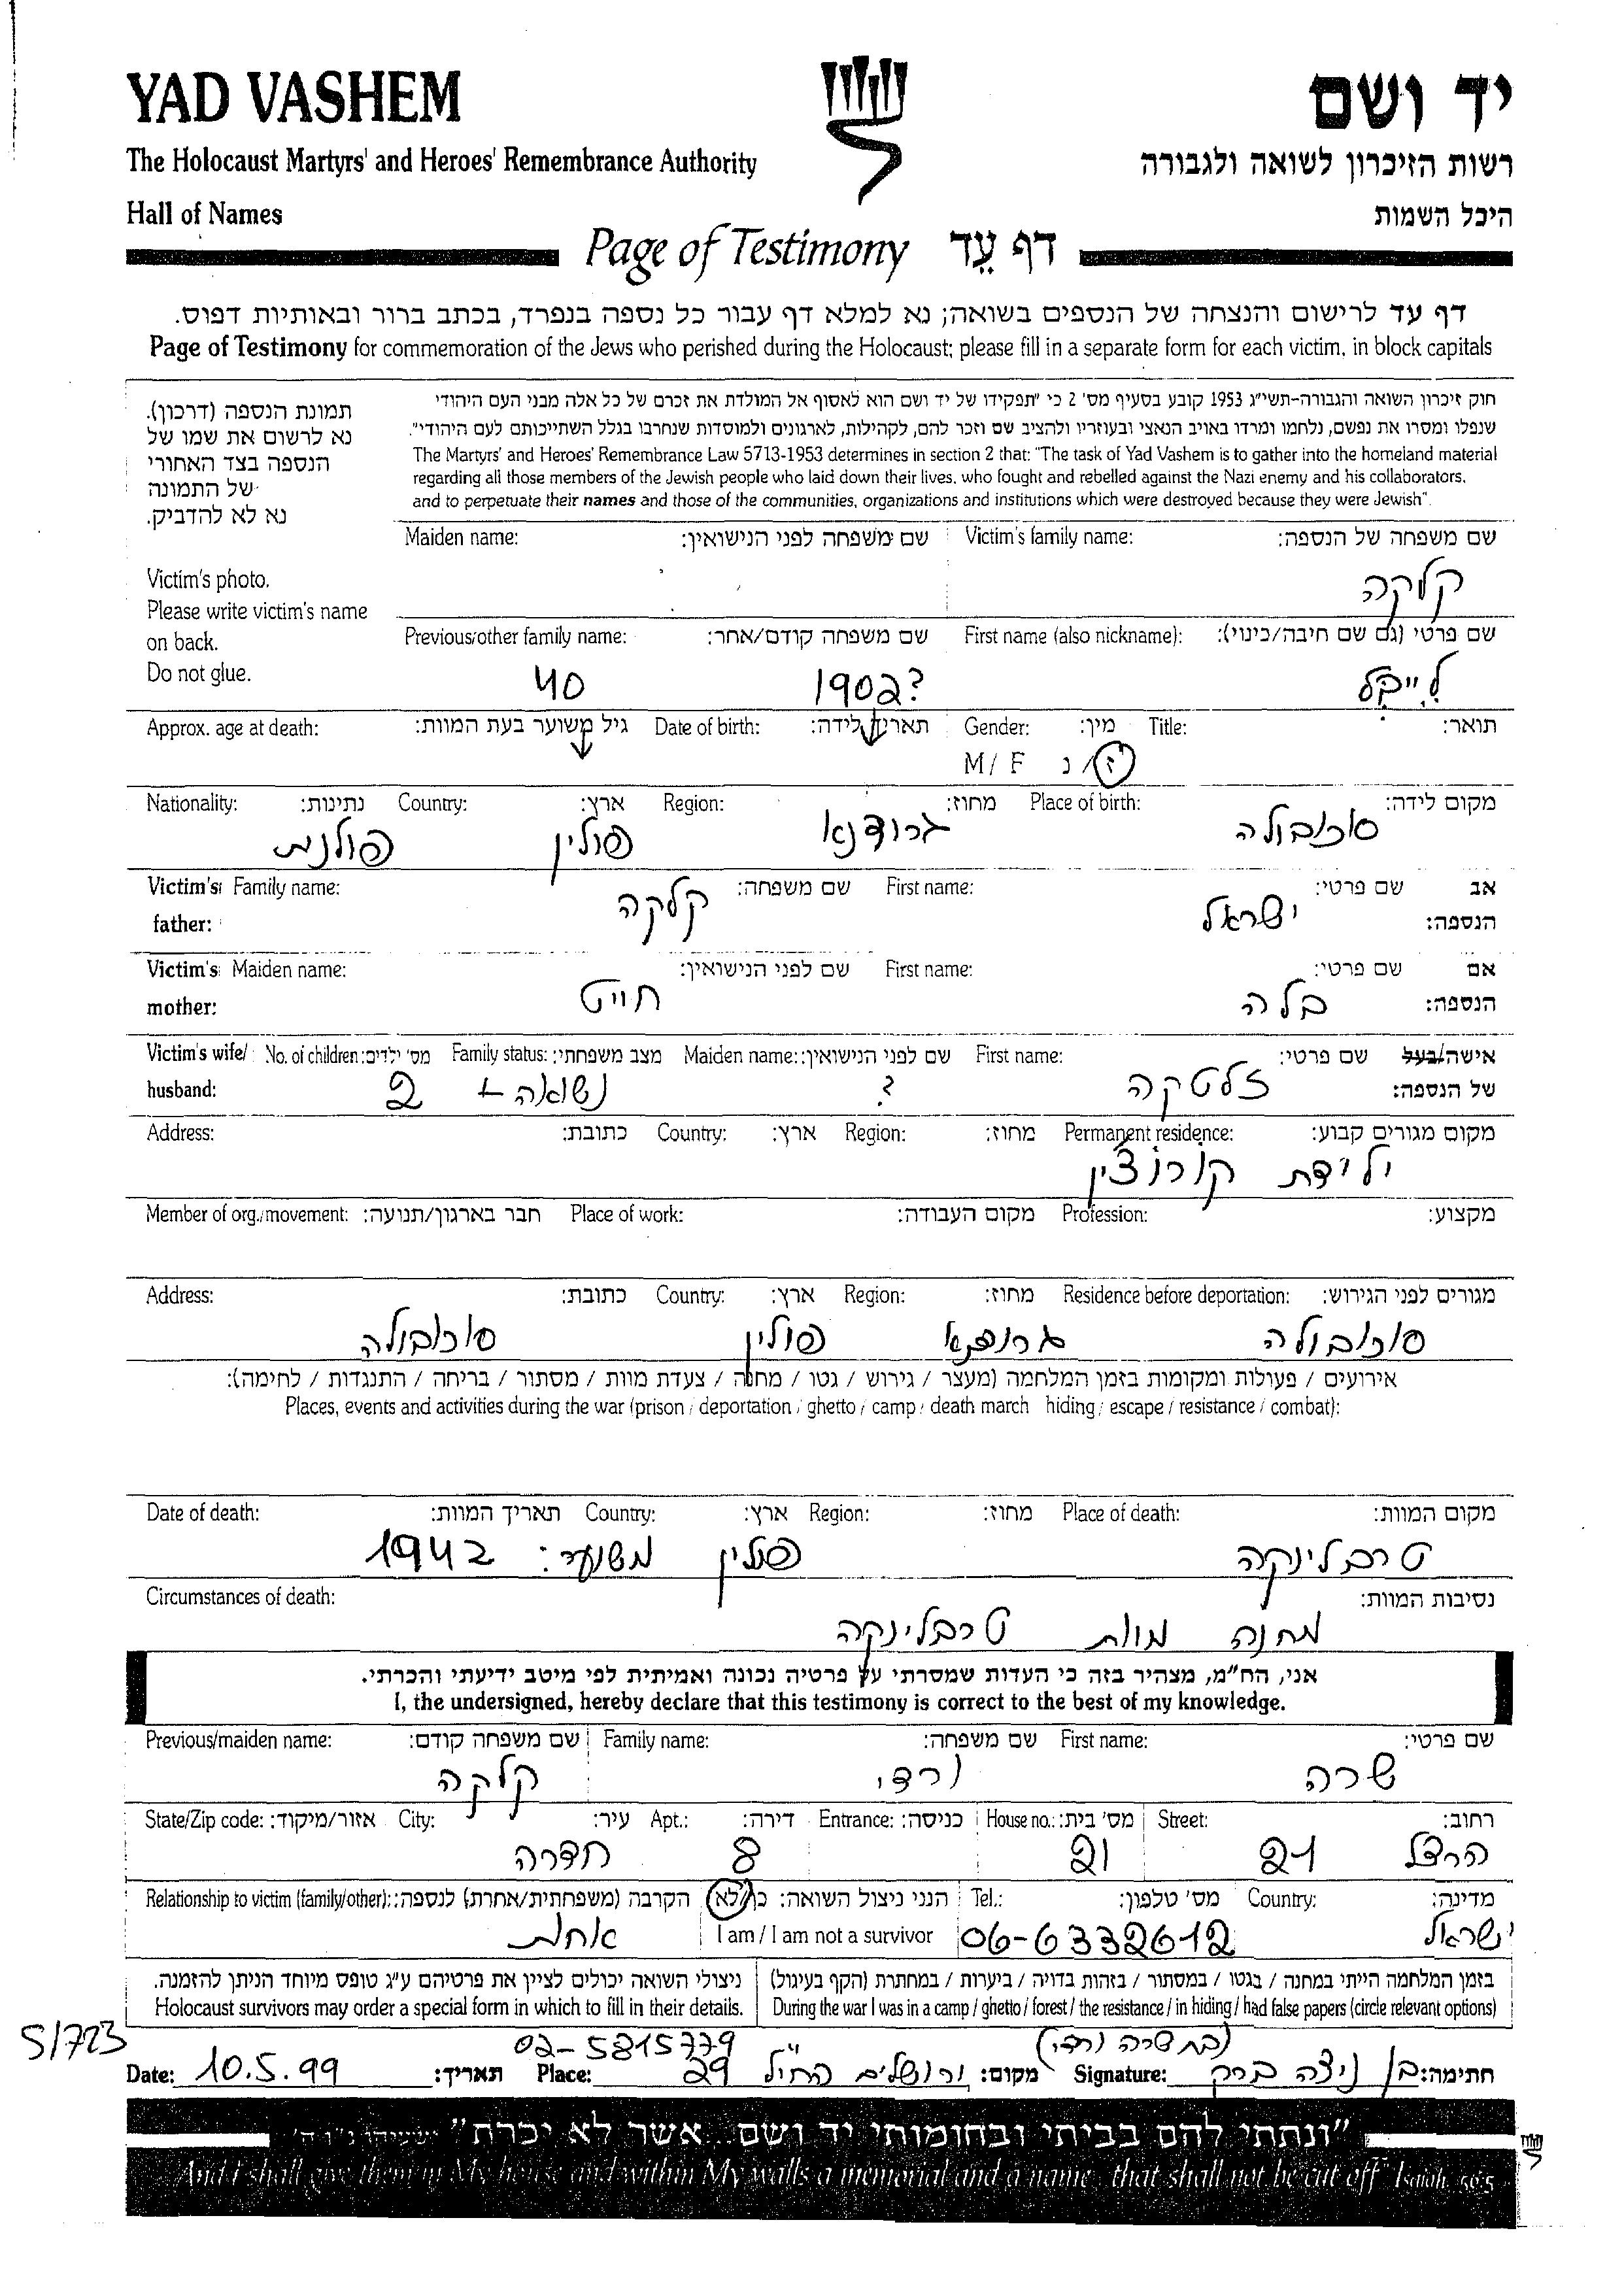 YAD VASHEM יד ושם
The Holocaust Martyrs' and Heroes' Remembrance Authority רשות הזיכרון לשואה ולגבורה
Hall of Names היכל השמות
Page of Testimony דף עֵד
דף עד לרישום והנצחה של הנספים בשואה; נא למלא דף עבור כל נספה בנפרד, בכתב ברור ובאותיות דפוס.
Page of Testimony for commemoration of the Jews who perished during the Holocaust; please fill in a separate form for each victim, in block capitals
תמונת הנספה (דרכון).
נא לרשום את שמו של
הנספה בצד האחורי
של התמונה
נא לא להדביק.
Victim's photo.
Please write victim's name
on back.
Do not glue.
חוק זיכרון השואה והגבורה-תשי"ג 1953 קובע בסעיף מס' 2 כי "תפקידו של יד ושם הוא לאסוף אל המולדת את זכרם של כל אלה מבני העם היהודי
שנפלו ומסרו את נפשם, נלחמו ומרדו באויב הנאצי ובעוזריו ולהציב שם וזכר להם, לקהילות, לארגונים ולמוסדות שנחרבו בגלל השתייכותם לעם היהודי".
The Martyrs' and Heroes' Remembrance Law 5713-1953 determines in section 2 that: "The task of Yad Vashem is to gather into the homeland material
regarding all those members of the Jewish people who laid down their lives, who fought and rebelled against the Nazi enemy and his collaborators,
and to perpetuate their names and those of the communities, organizations and institutions which were destroyed because they were Jewish".
Maiden name: שם משפחה לפני הנישואין: Victim's family name: שם משפחה של הנספה:
קלקה
Previous/other family name: שם משפחה קודם/אחר: First name (also nickname): שם פרטי (גם שם חיבה/כינוי):
40 1902? לייבל
Approx. age at death: גיל משוער בעת המוות: Date of birth: תאריך לידה: Gender: מין: Title: תואר:
M / F ז / נ
Nationality: נתינות: Country: ארץ: Region: מחוז: Place of birth: מקום לידה:
פולנית פולין גרודנא סוכובולה
Victim's father: Family name: שם משפחה: First name: שם פרטי: אב הנספה:
קלקה ישראל
Victim's mother: Maiden name: שם לפני הנישואין: First name: שם פרטי: אם הנספה:
חייט בלה
Victim's wife/ husband: No. of children: מס' ילדים: Family status: מצב משפחתי: Maiden name: שם לפני הנישואין: First name: שם פרטי: אישה/בעל של הנספה:
2 נשואה + ? זלטקה
Address: כתובת: Country: ארץ: Region: מחוז: Permanent residence: מקום מגורים קבוע:
ילידת קורוצין
Member of org./movement: חבר בארגון/תנועה: Place of work: מקום העבודה: Profession: מקצוע:
Address: כתובת: Country: ארץ: Region: מחוז: Residence before deportation: מגורים לפני הגירוש:
סוכובולה פולין גרודנא סוכובולה
אירועים / פעולות ומקומות בזמן המלחמה (מעצר / גירוש / גטו / מחנה / צעדת מוות / מסתור / בריחה / התנגדות / לחימה):
Places, events and activities during the war (prison / deportation / ghetto / camp / death march hiding / escape / resistance / combat):
Date of death: תאריך המוות: Country: ארץ: Region: מחוז: Place of death: מקום המוות:
1942 משוער: פולין טרבלינקה
Circumstances of death: נסיבות המוות:
מחנה מוות טרבלינקה
אני, הח"מ, מצהיר בזה כי העדות שמסרתי על פרטיה נכונה ואמיתית לפי מיטב ידיעתי והכרתי.
I, the undersigned, hereby declare that this testimony is correct to the best of my knowledge.
Previous/maiden name: שם משפחה קודם: Family name: שם משפחה: First name: שם פרטי:
קלקה ורדי שרה
State/Zip code: אזור/מיקוד: City: עיר: Apt.: דירה: Entrance: כניסה: House no.: מס' בית: Street: רחוב:
חדרה 8 21 21 הרצל
Relationship to victim (family/other): הקרבה (משפחתית/אחרת) לנספה: הנני ניצול השואה: כן/לא Tel.: מס' טלפון: Country: מדינה:
אחות I am / I am not a survivor 06-6332612 ישראל
ניצולי השואה יכולים לציין את פרטיהם ע"ג טופס מיוחד הניתן להזמנה. בזמן המלחמה הייתי במחנה / בגטו / במסתור / בזהות בדויה / ביערות / במחתרת (הקף בעיגול)
Holocaust survivors may order a special form in which to fill in their details. During the war I was in a camp / ghetto / forest / the resistance / in hiding / had false papers (circle relevant options)
51723 02-5815779 (בת שרה ורדי)
Date: 10.5.99 תאריך: Place: 29 החי"ל ירושלים מקום: Signature: בן ניצה ברק חתימה:
"ונתתי להם בביתי ובחומותי יד ושם...אשר לא יכרת" ישעיהו נ"ו ה'
And I shall give them in My house and within My walls a memorial and a name...that shall not be cut off" Isaiah 56:5